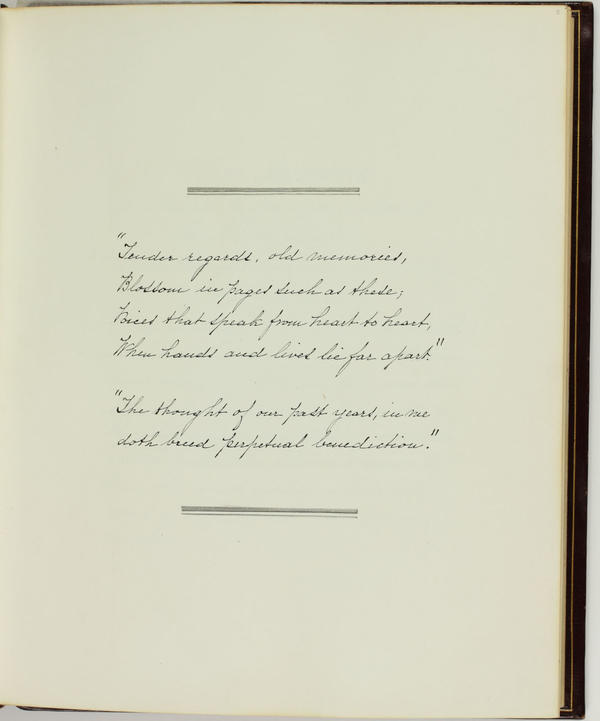 "Tender regards, old memories,
Blossom in pages such as these;
Voices that speak from heart to heart,
When hands and lives lie far apart."
"The thought of our past years, in me
doth breed perpetual benediction."